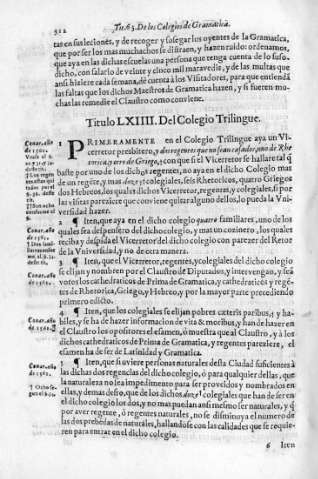 512 Tit. 63. De los Colegios de Gramatica.
tas en sus leciones, y de recoger y sosegar los oyentes de la Gramatica,
que por ser los mas muchachos se distraen, y hazen ruido: ordenamos,
que aya en las dichas escuelas una persona que tenga cuenta de lo suso
dicho, con salario de veynte y cinco mil maravedis, y de las multas que
ansi hiziere cada semana, dê cuenta à los Visitadores, para que entienda
las faltas que los dichos Maestros de Gramatica hazen, y si fueren mu-
chas las remedie el Claustro como conviene.
Titulo LXIIII. Del Colegio Trilingue.
1 PRIMERAMENTE en el Colegio Trilingue aya un Vi-
cerretor presbitero, y dos regentes que no sean casados, uno de Rhe
torica, y otro de Griego, † con que si el Vicerretor se hallare tal q
baste por uno de los dichos regentes, no aya en el dicho Colegio mas
de un regête, y mas doze † colegiales, seis Rhetoricos, quatro Griegos
dos Hebreos, los quales dichos Vicerretor, regentes, y colegiales, si por
las visitas pareziere que conviene quitar alguno dellos, lo pueda la Uni-
versidad hazer.
2 ¶ Iten, que aya en el dicho colegio quatro familiares, uno de los
quales sea despensero del dicho colegio, y mas un cozinero, los quales
reciba y despida el Vicerretor del dicho colegio con parezer del Retor
de la Universidad, y no de otra manera.
3 ¶ Iten, que el Vicerretor, regentes, y colegiales del dicho colegio
se elijan y nombren por el Claustro de Diputados, y intervengan, y seã
votos los cathedraticos de Prima de Gramatica, y cathedraticos y regẽ-
tes de Rhetorica, Griego, y Hebreo, y por la mayor parte precediendo
primero edicto.
4 ¶ Iten, que los colegiales se elijan pobres cæteris paribus, † y ha-
biles, y se ha de hazer informacion de vita & moribus, y han de hazer en
el Claustro los opositores el examen, ò muestra que al Claustro, y à los
dichos cathedraticos de Prima de Gramatica, y regentes pareziere, el
examen ha de ser de Latinidad y Gramatica.
5 ¶ Iten, que si uviere personas naturales desta Ciudad suficientes à
las dichas dos regencias del dicho colegio, ò para qualquier dellas, que
la naturaleza no sea impedimento para ser proveidos y nombrados en
ellas, y demas desto, que de los dichos doze † colegiales que han de ser en
el dicho colegio los dos, y no mas puedan ansi mesmo ser naturales, y q̃
por aver regente, ò regentes naturales, no se disminuya el numero de
las dos prebendas de naturales, hallandose con las calidades que se requie-
ren para entrar en el dicho colegio.
6 Iten